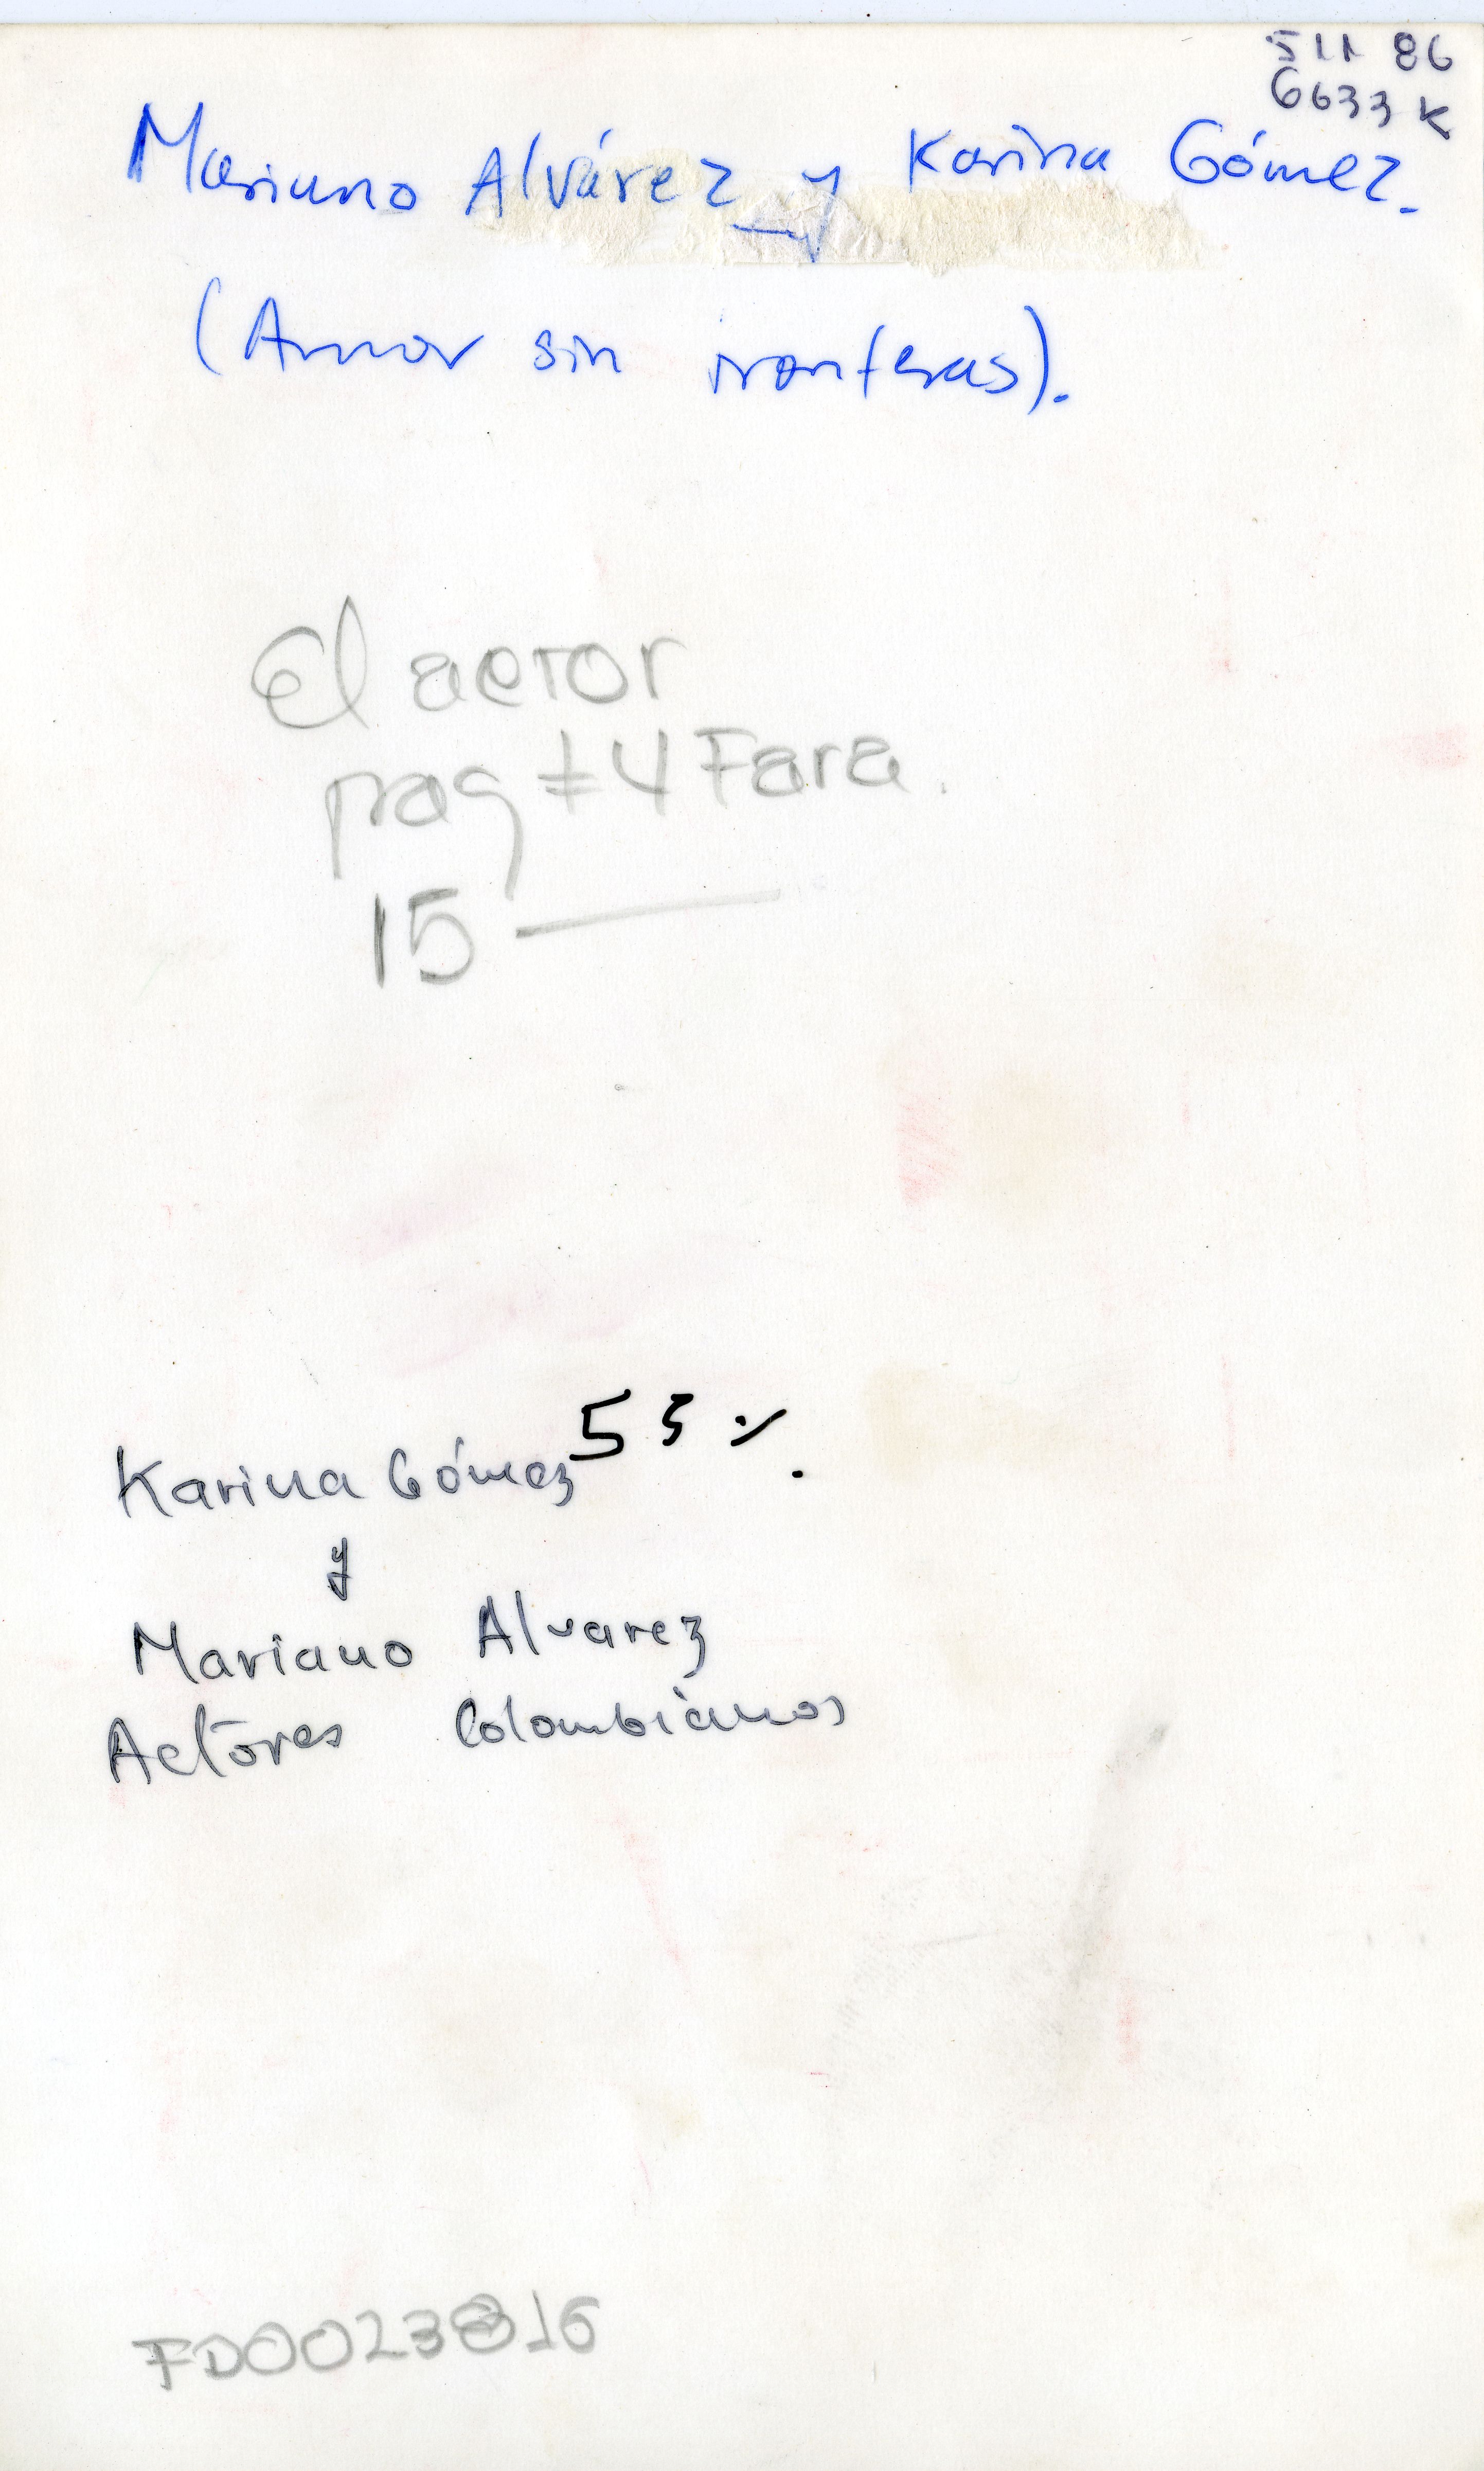 511 86
6633 K
Mariano Alvárez y Karina Gómez.
(Amor sin fronteras).
El actor
pag ‡ 4 Fara.
15 —
53 %.
Karina Gómez
y
Mariano Alvarez
Actores Colombianos
FD0023816